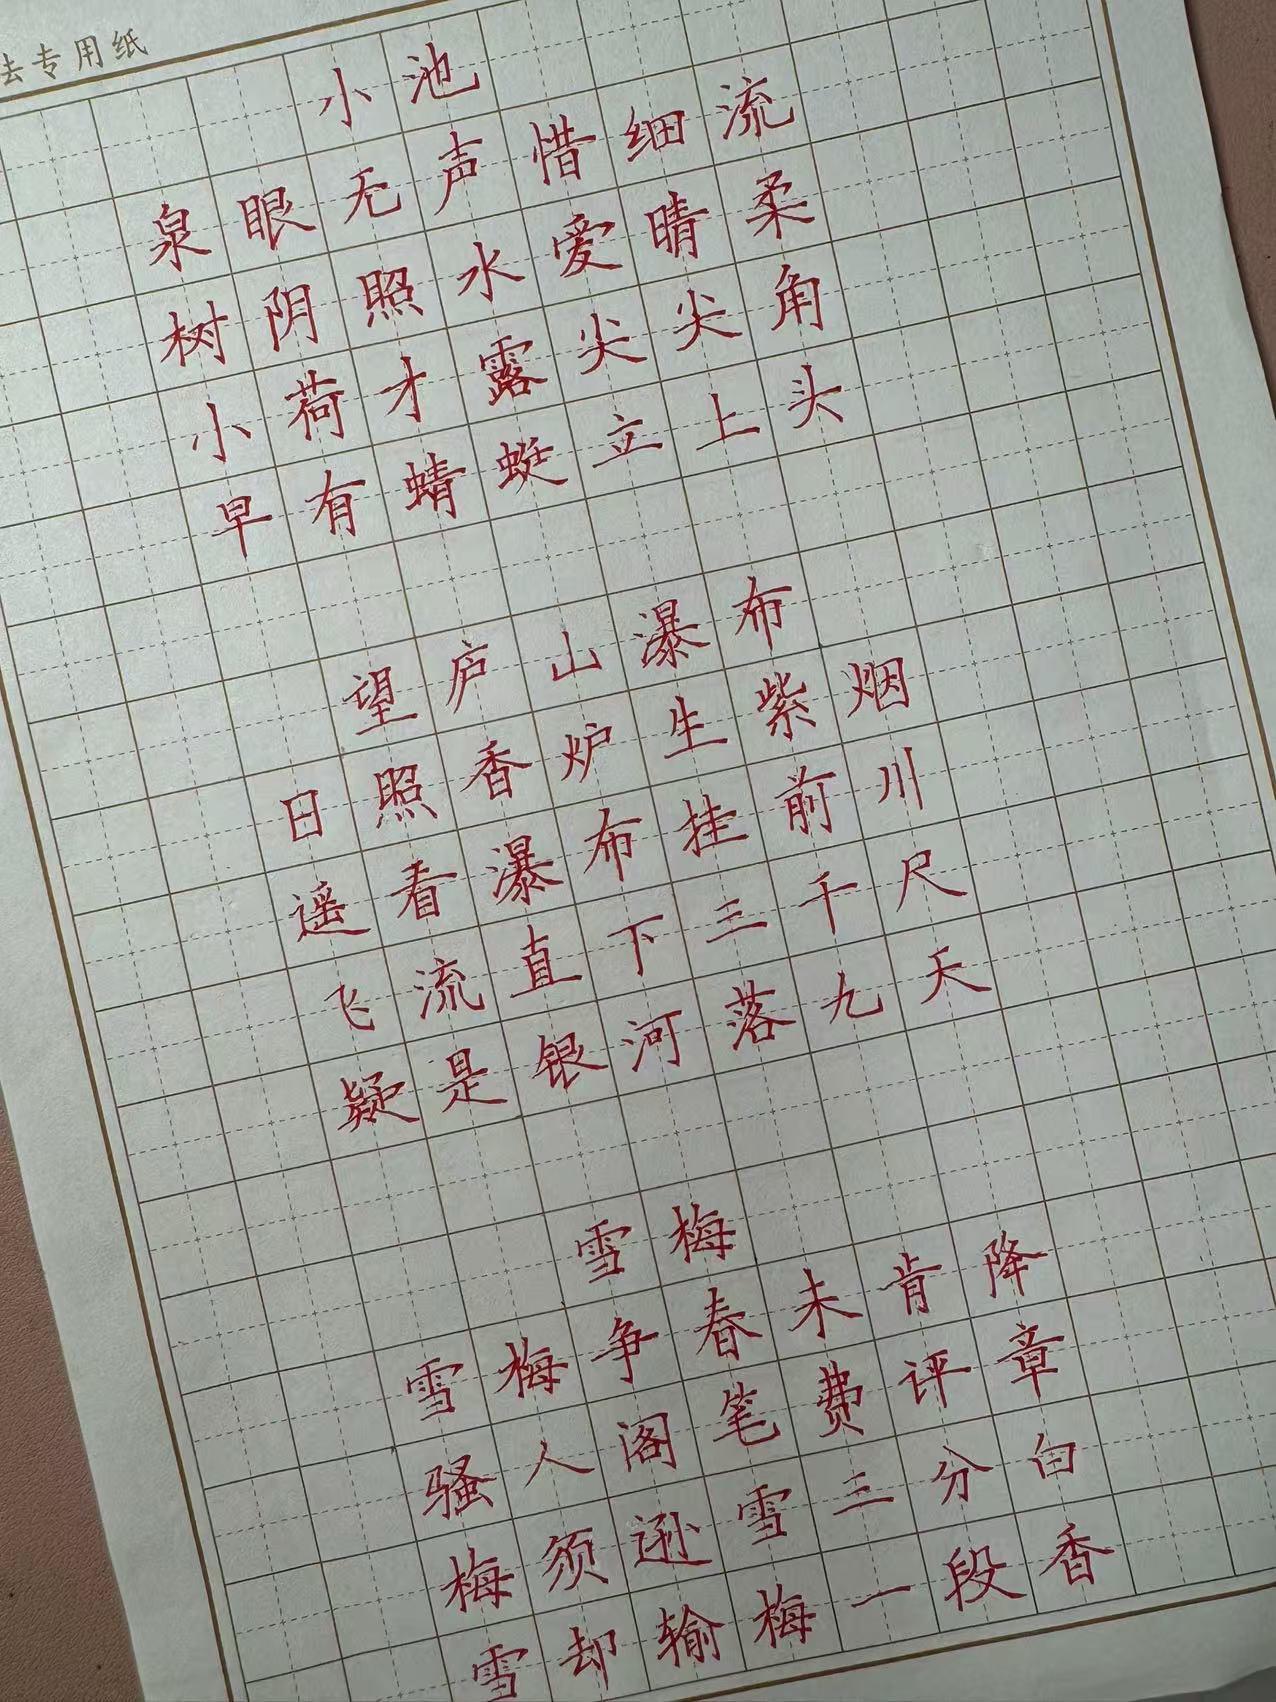 法专用纸
小池
泉眼无声惜细流
树阴照水爱晴柔
小荷才露尖尖角
早有蜻蜓立上头
望庐山瀑布
日照香炉生紫烟
遥看瀑布挂前川
飞流直下三千尺
疑是银河落九天
雪梅
雪梅争春未肯降
骚人阁笔费评章
梅须逊雪三分白
雪却输梅一段香